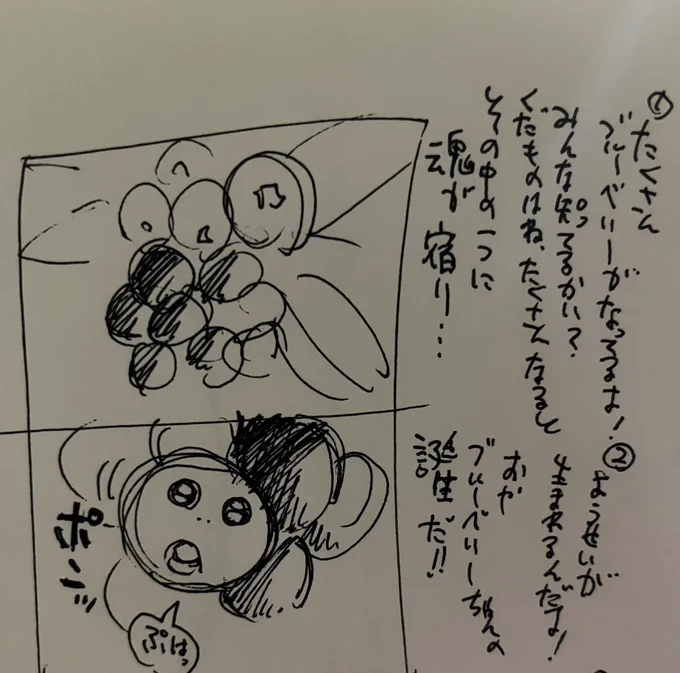 ①
たくさん
ブルーベリーがなってるよ!
みんな知ってるかい?
くだものはね、たくさんなると
その中の一つに
魂が宿り…
②
ようせいが
生まれるんだよ!
おや
ブルーベリーちゃんの
誕生だ!!
ポンッ
ぷはっ